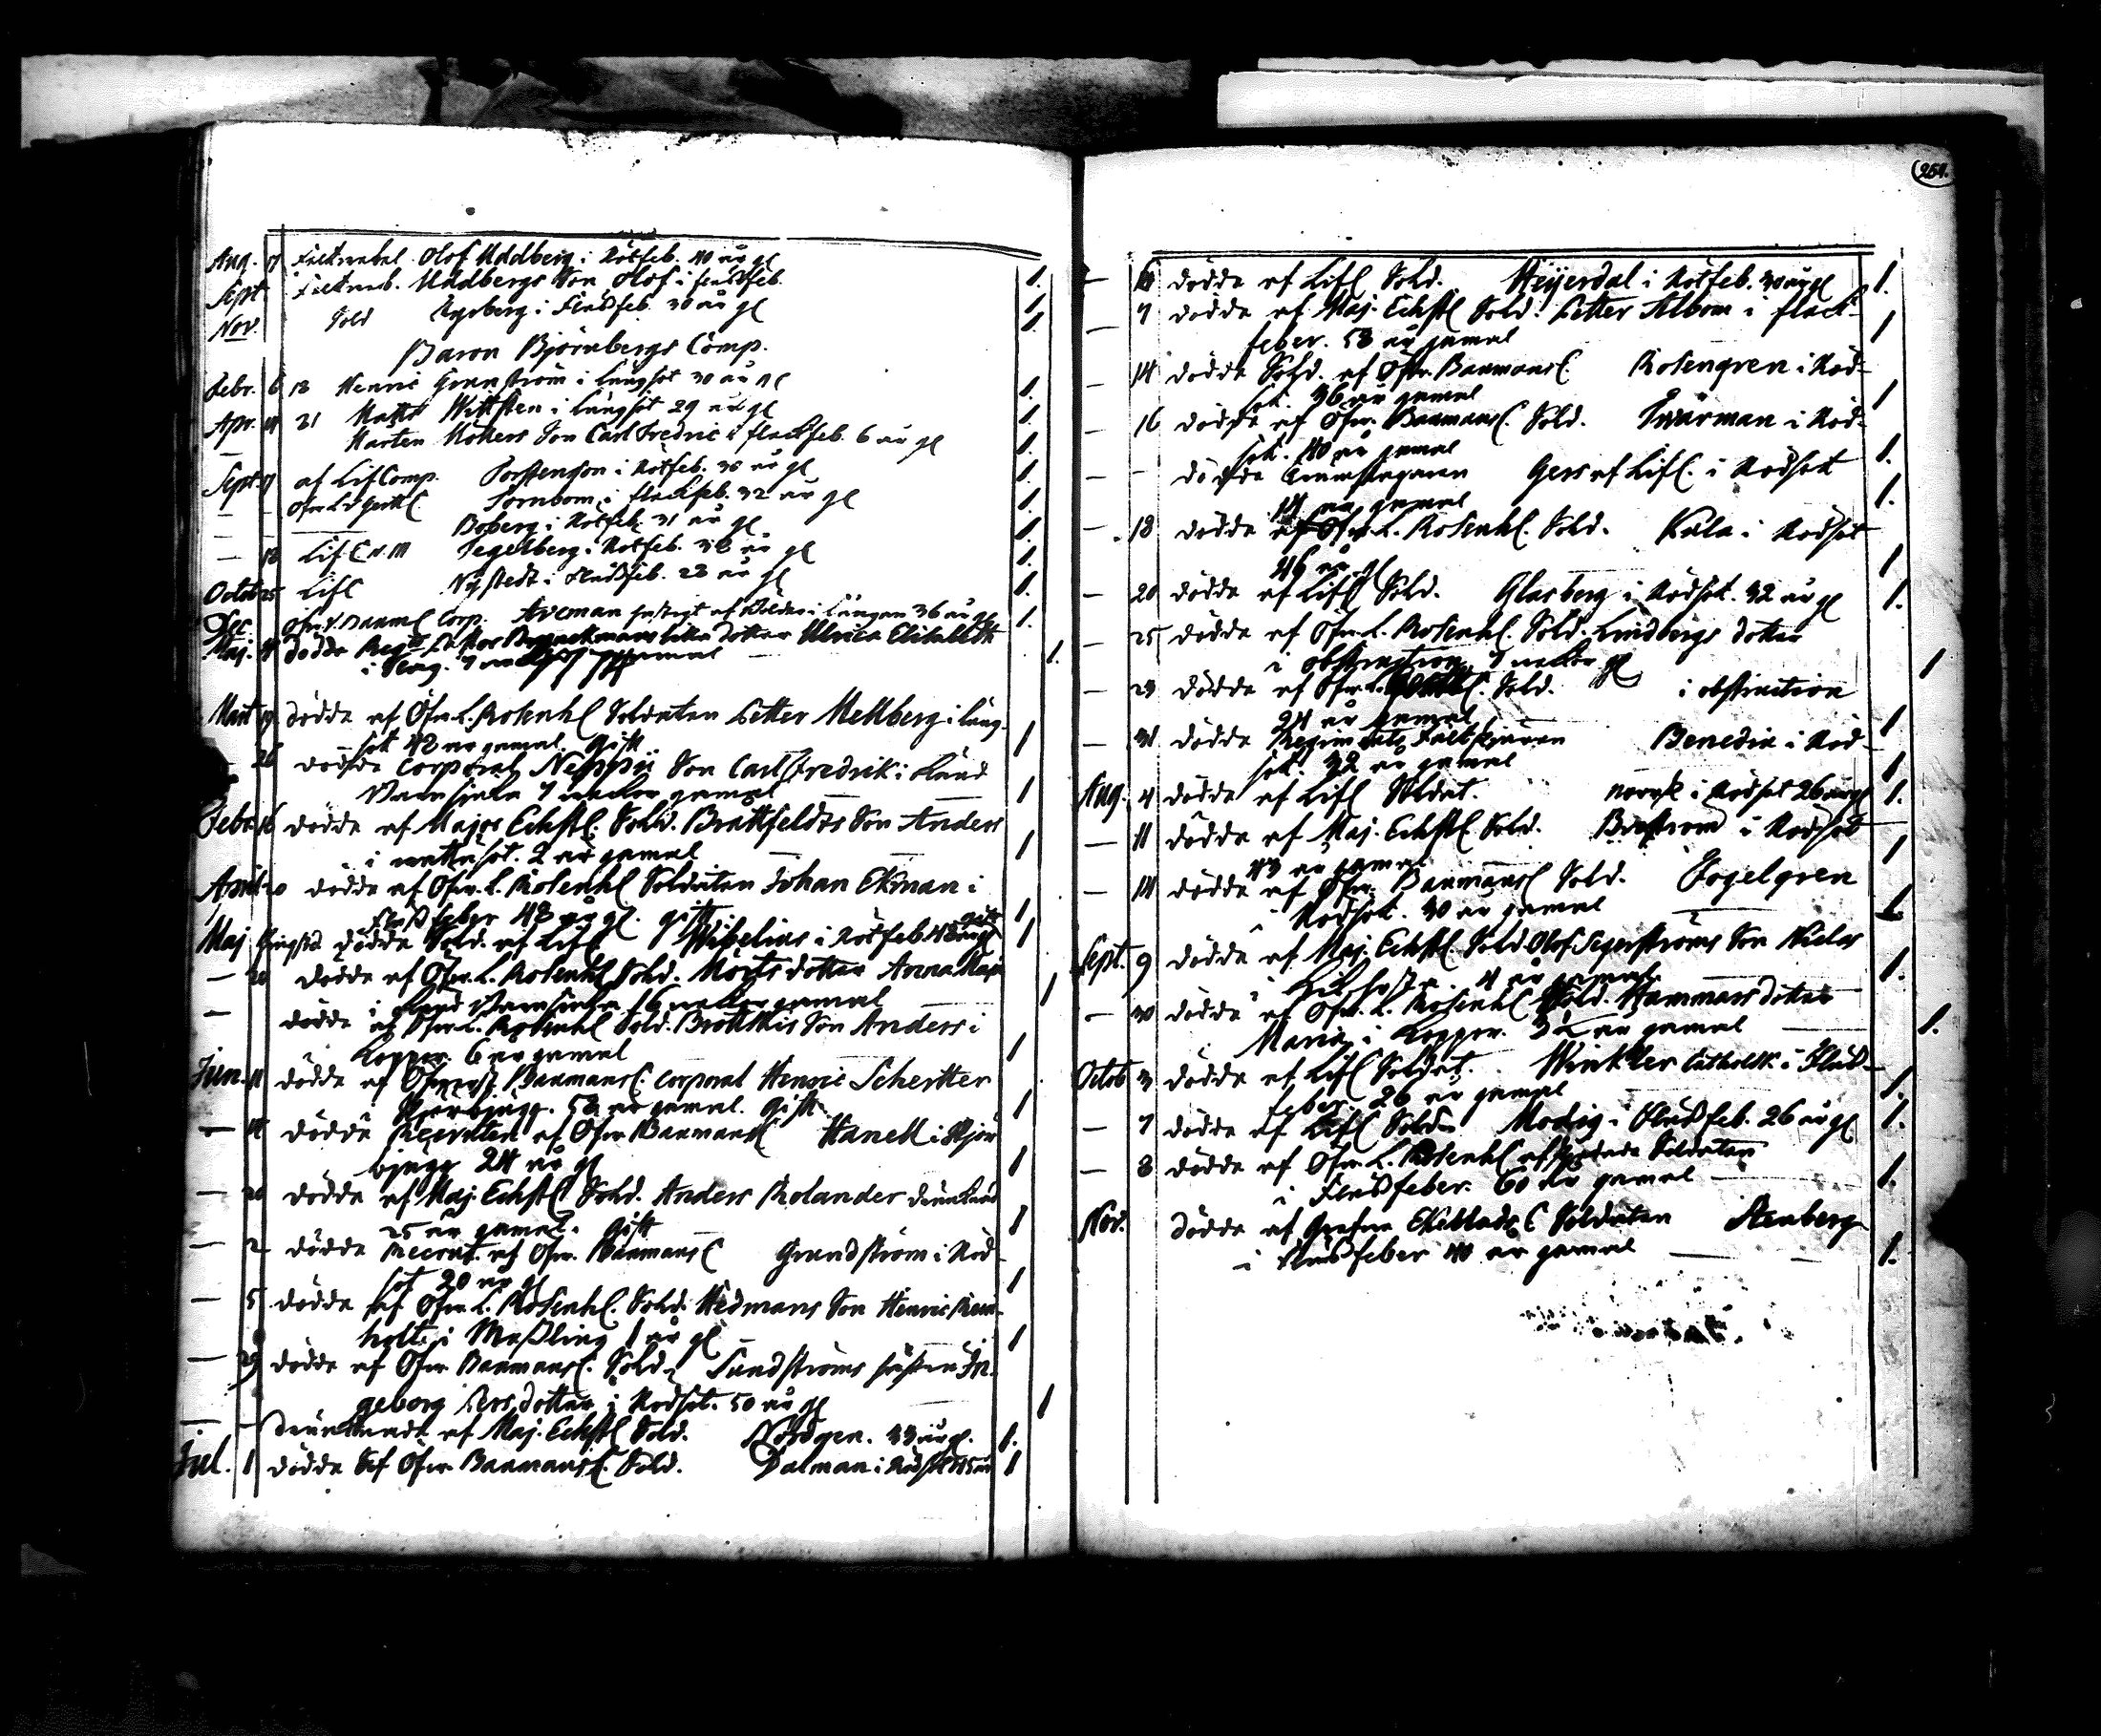 Aug. 17 Fältwebel Olof Uddberg i Rötfeb. 40 år gl
Sept Fältweb. Uddbergs Son Olof i flußfeb. 1.
Nov. Sold Egeberg i Flußfeb. 30 år gl 1.
Baron Björnbergs Comp.
Febr. 6 13 Henric Granström i lungsot 30 år gl 1.
Apr. 11 31 Matts Wittsten i Lungsot 29 år gl 1.
— Marten Mollers Son Carl Fredric i fläckfeb. 6 år gl 1.
Sept. 17 af Lif Comp. Torstenson i Rötfeb. 35 år gl 1.
— — Tornbom i fläckfeb. 32 år gl 1.
— — Boberg i Rötfeb. 31 år gl 1.
— 18 Lif C. Tegelberg i Rötfeb. 38 år gl 1.
Octob 25 Lif C Nystedt i Flußfeb. 28 år gl 1.
Dec. Öfw. L. Baumans C Corp. Areman 36 år gl 1.
Maj. dödde Reg. dotter Ulrica Elisabeth
i Slag. 7 gammal — 1.
Mart 19 dödde af Öfw. L. Rosenh C Soldaten Petter Mellberg i lung-
sot 42 år gamal. gift 1
— 26 dödde Corporal Neppii Son Carl Fredrik i
7 wekor gamal — 1
Febr 16 dödde af Major Eckst C. Sold. Brattfeldts Son Anders
i wattusot. 2 år gamal — 1
April 20 dödde af Öfw. L. Rosenh C Soldaten Johan Ekman i
Flußfeber 48 år gl. gift 1
Maj Pingstd dödde Sold. af Lif C Wibelius i Rötfeb. 48 år gl gift 1
— 20 dödde af Öfw. L. Rosenh C Sold. Mörts dotter Anna Maja
i 16 wekor gamal 1
— dödde af Öfw. L. Rosenh C Sold. Son Anders i
Koppor. 6 år gamal 1
Jun. 11 dödde af Öfwerst Baumans C. Corporal Henric Schertter
Skjörbjugg. 52 år gamal. gift 1
— 14 dödde Recruten af Öfw Baumans C Hanell i Skjör-
bjugg 24 år gl 1
— 20 dödde af Maj. Eckst C Sold. Anders Rolander drunknad
25 år gamal. gift 1
— 2 dödde Recrut. af Öfw. Baumans C Grundström i Röd-
sot 20 år gl 1
— 5 dödde af Öfw. L. Rosenh C. Sold. Hedmans Son Henric Rein-
holt i Meßling 1 år gl 1
— 29 dödde af Öfw Baumans C. Sold. Sundströms hustru In-
geborg Persdotter i Rödsot. 50 år gl 1
— — Drunknade af Maj. Eckst C Sold. Nordgen. 33 år gl. 1.
Jul. 1 dödde af Öfw Baumans C. Sold. Dalman i Rödsot 45 år 1
251.
— 6 dödde af Lif C Sold. Heijerdal i Rötfeb. 30 år gl 1.
— 7 dödde af Maj. Eckst C Sold. Petter Albom i fläck-
feber. 53 år gamal 1
— 14 dödde Sold. af Öfw. Baumans C. Rosengren i Röd-
sot. 36 år gamal 1
— 16 dödde af Öfw. Baumans C. Sold. Swärman i Röd-
sot. 40 år gamal 1.
— — dödde Gers af Lif C. i Rödsot
14 år gamal 1.
— 18 dödde af Öfw. L. Rosenh C. Sold. Kula i Rödsot
46 år gl 1
— 20 dödde af Lif C Sold. Glasberg i Rödsot. 32 år gl 1.
— 25 dödde af Öfw. L. Rosenh C. Sold. Lindbergs dotter
i obstruction 7 wekor gl 1
— 29 dödde af Öfw. L. Sold. i obstruction
24 år gamal 1
— 31 dödde Regiments Fältskjären Benedix i Röd-
sot. 32 år gamal 1
Aug. 4 dödde af Lif C Soldat. norsk i Rödsot 26 år gl 1.
— 11 dödde af Maj. Eckst C Sold. Boström i Rödsot
43 år gamal 1
— 14 dödde af Öfw. Baumans C Sold. Fogelgren
i Rödsot. 30 år gamal 1
Sept. 9 dödde af Maj. Eckst C. Sold Olof Segerströms Son Niclas
i Kikhosta. 4 år gamal 1.
— 30 dödde af Öfw. L. Rosenh C Sold. Hammars dotter
Maria i Koppor. 3½ år gamal 1.
Octob 3 dödde af Lif C Soldat. Winkler Catholsk i Fluß-
feber. 26 år gamal 1.
— 7 dödde af Lif C Sold Modig i Flußfeb. 26 år gl 1.
— 8 dödde af Öfw. L. Rosenh C Soldaten
i Flußfeber. 60 år gamal — 1.
Nov. dödde af Grefwe Ekeblads C Soldaten Stenberg
i Flußfeber 40 år gamal — 1.